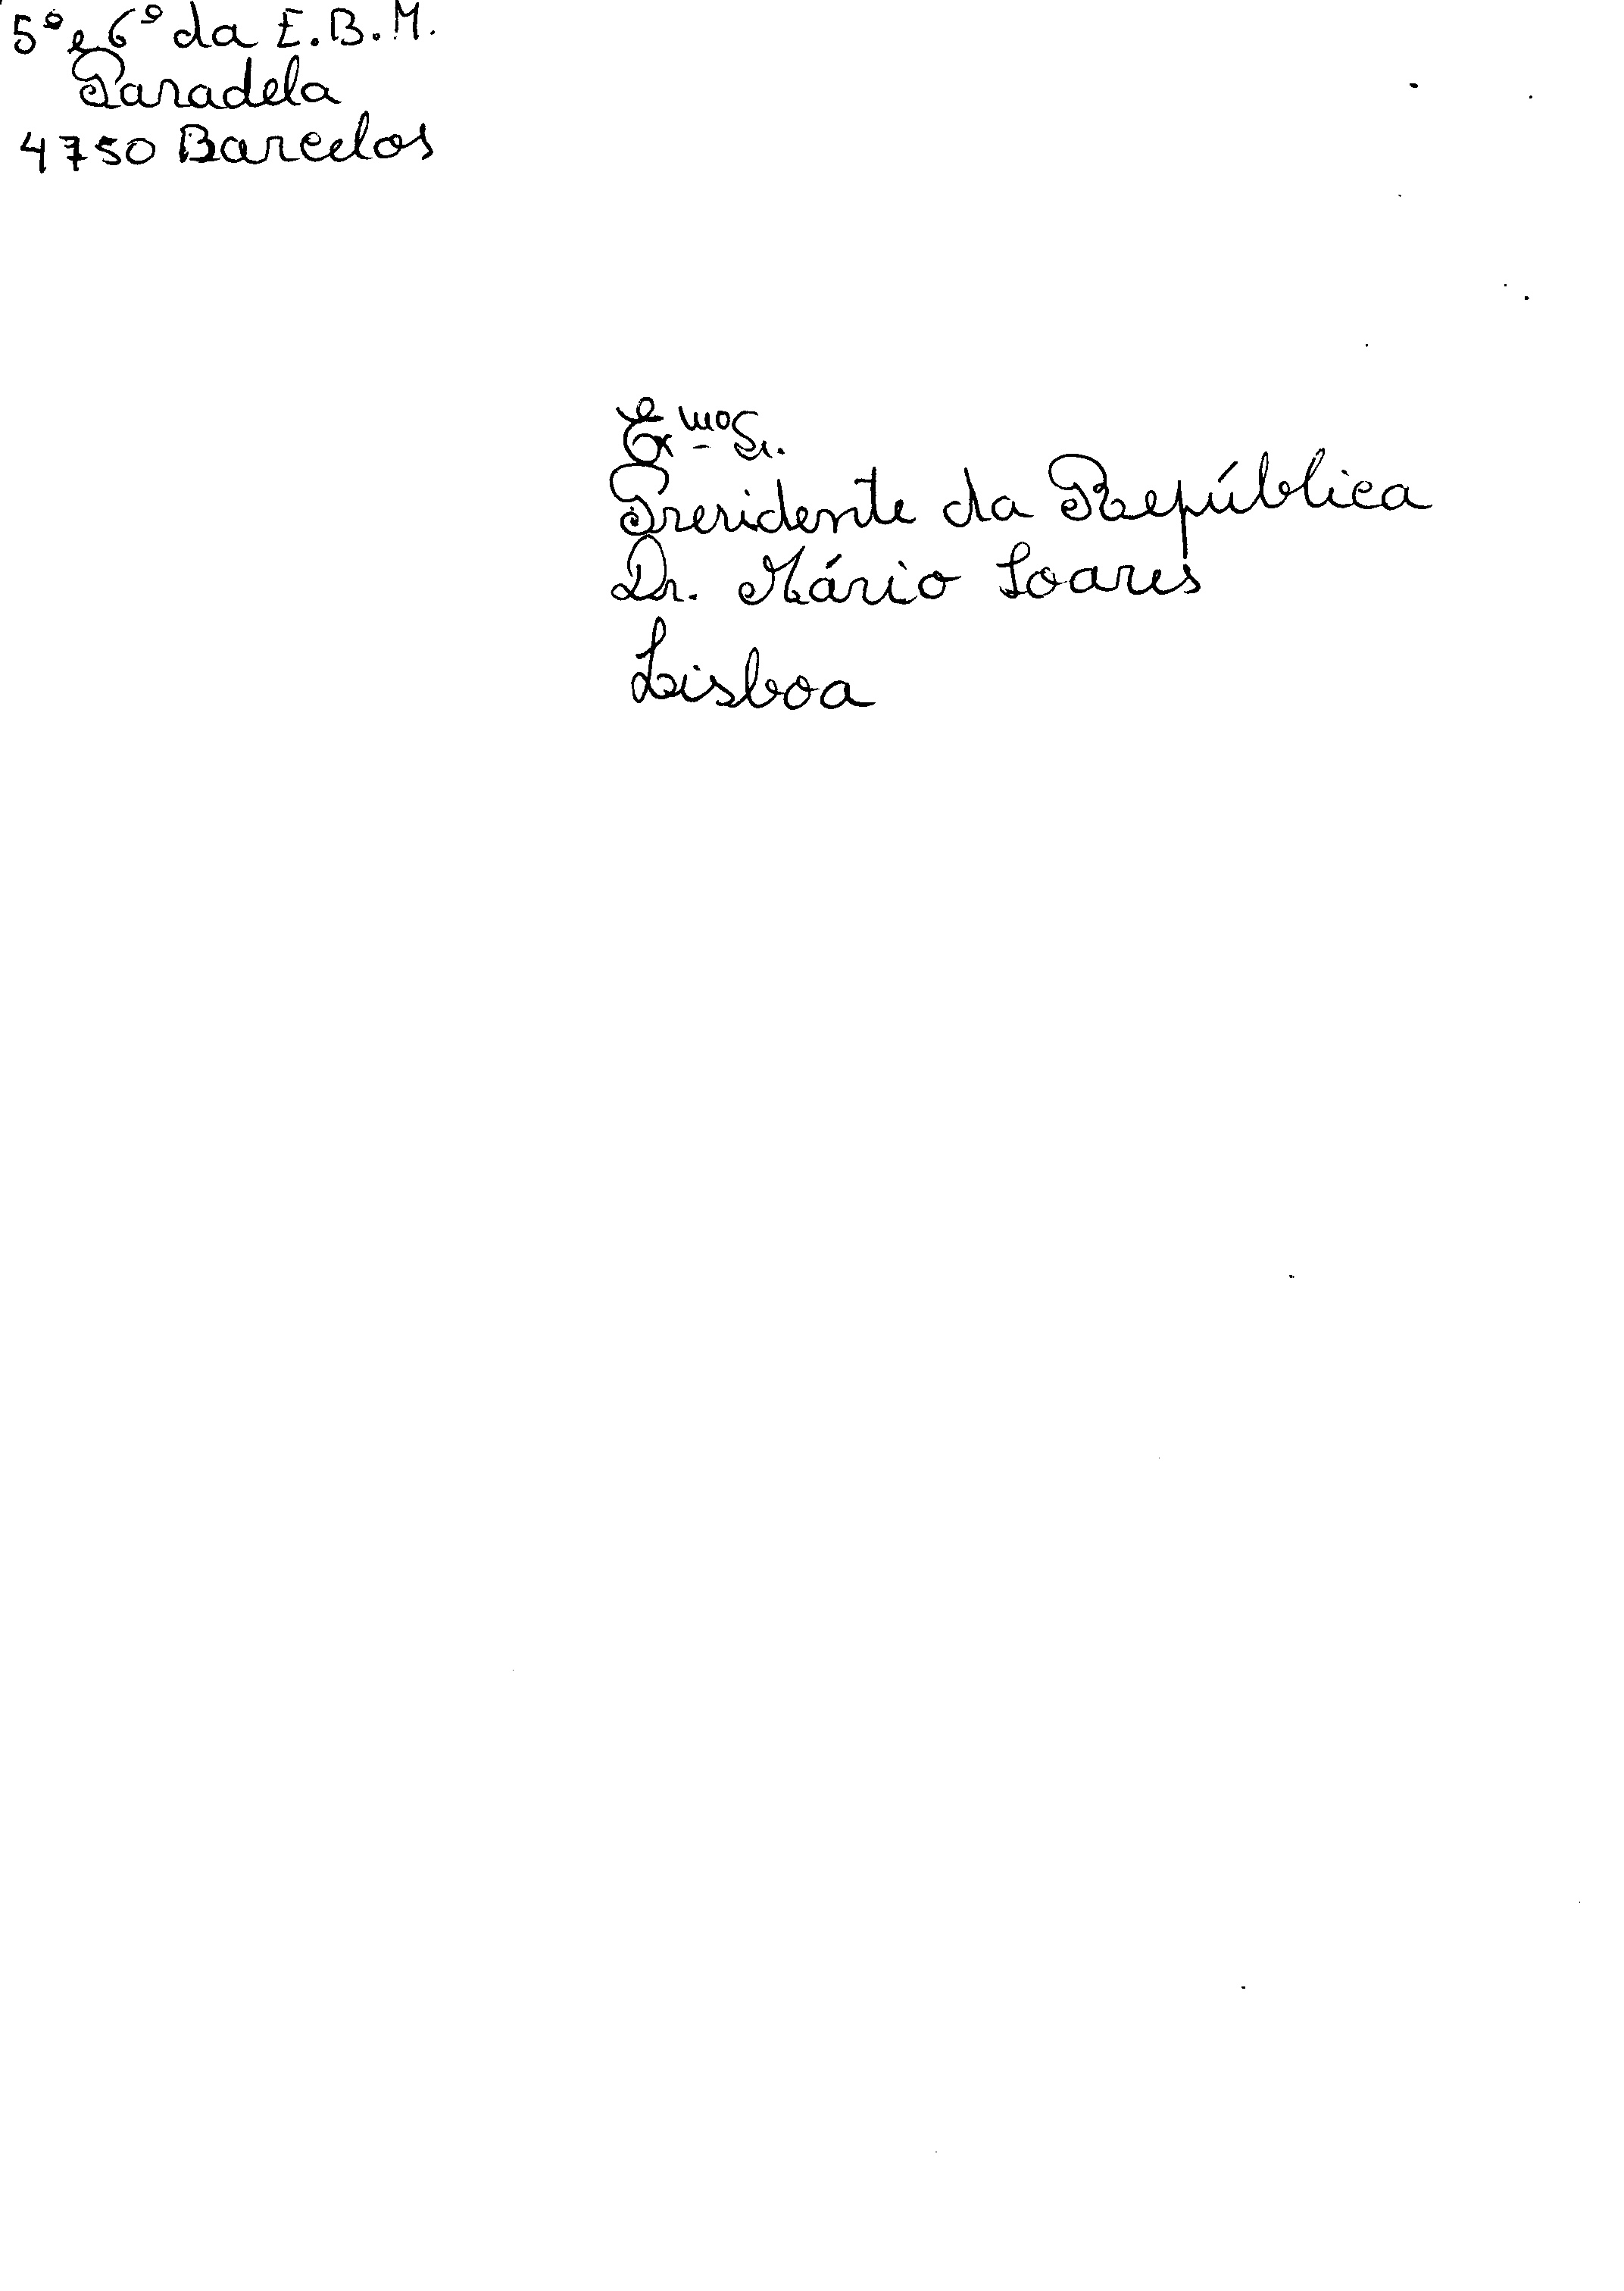 5º e 6º da E.B.M.
Paradela
4750 Barcelos
Exmo Sr.
Presidente da República
Dr. Mário Soares
Lisboa